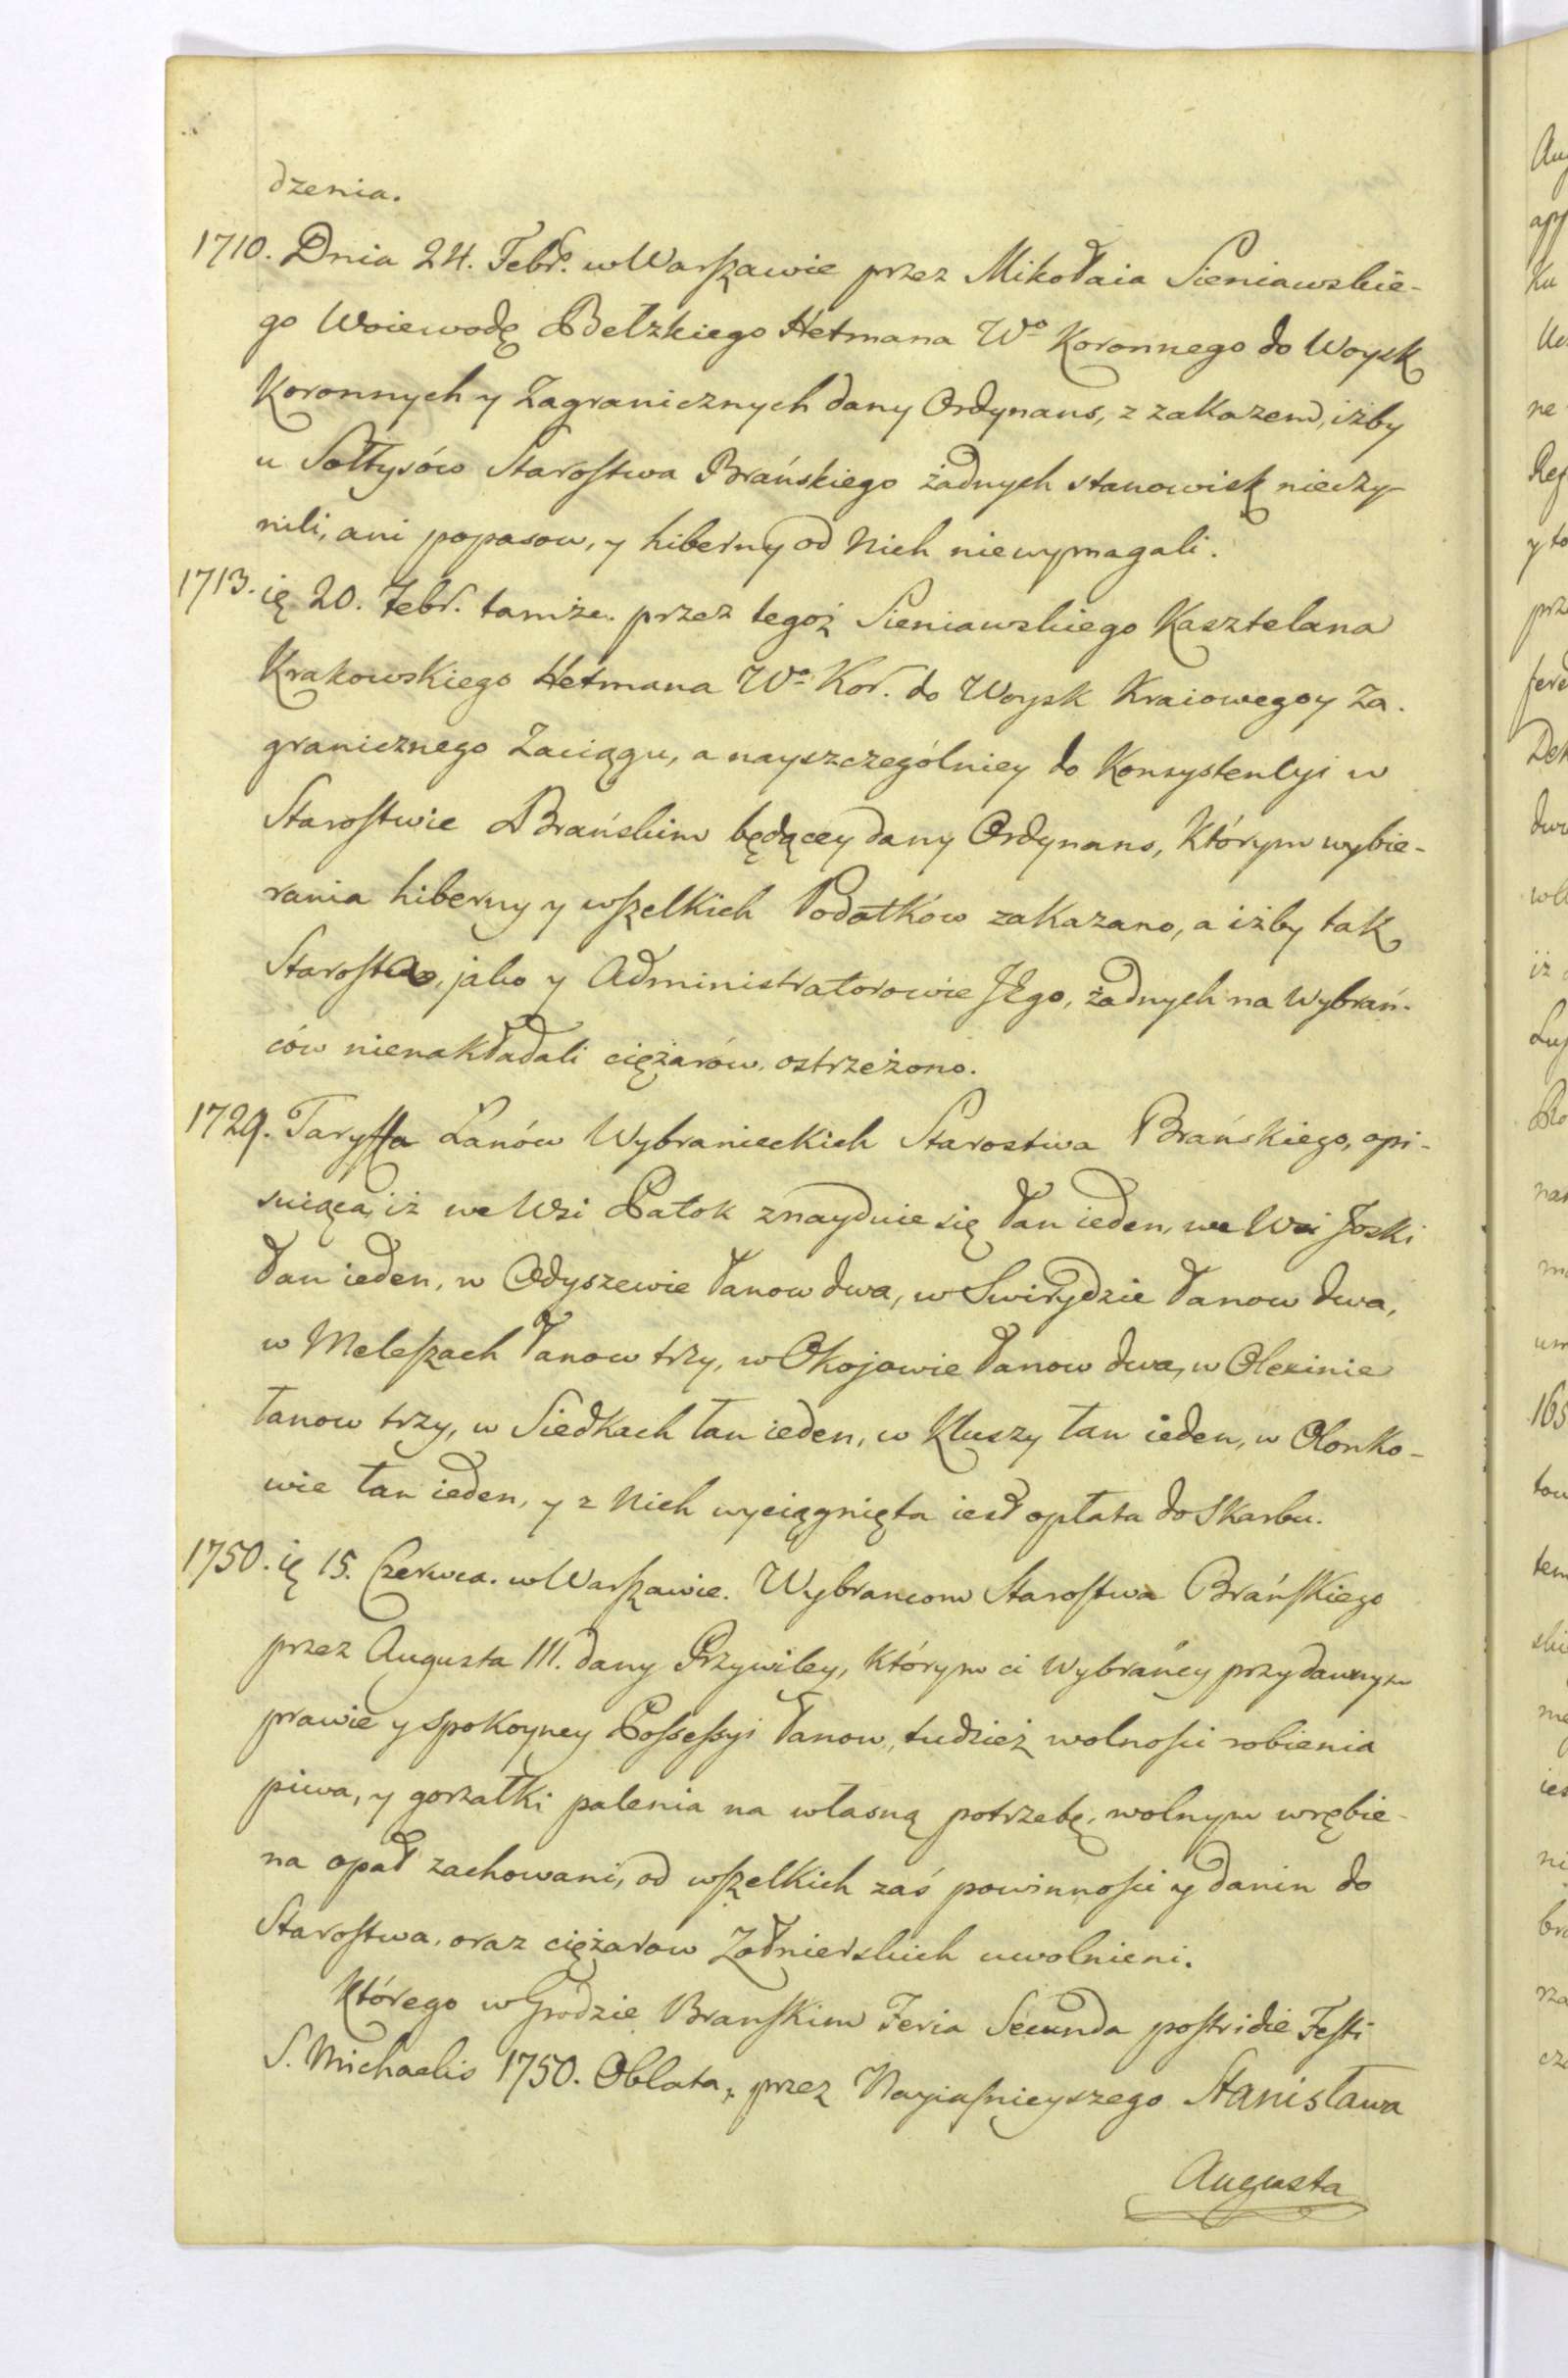 dzenia.
1710. Dnia 24. Febr. w Warszawie przez Mikołaia Sieniawskie-
go Woiewodę Bełzkiego Hetmana Wo Koronnego do Woysk
Koronnych y Zagranicznych dany Ordynans, z zakazem, iżby
u Sołtysów Starostwa Brańskiego żadnych stanowisk nieczy-
nili, ani popasow, y hiberny od Nich niewymagali.
1713. ię 20. Febr. tamże. przez tegoż Sieniawskiego Kasztelana
Krakowskiego Hetmana Wo Kor. do Woysk Kraiowego y Za.
granicznego Zaciągu, a nayszczególniey do Konsystencyi w
Starostwie Brańskim będącey dany Ordynans, którym wybie-
rania hiberny y wszelkich Podatków zakazano, a iżby tak
Starosta, jako y Administratorowie JEgo, żadnych na Wybrań-
ców nienakładali ciężarów, ostrzeżono.
1729. Taryffa Łanów Wybranieckich Starostwa Brańskiego, opi-
suiąca, iż we Wsi Patok znayduie się łan ieden, we Wsi Joski
łan ieden, w Odyszewie łanow dwa, w Swirydzie łanow dwa,
w Meleszach łanow trzy, w Chojowie łanow dwa, w Olexinie
łanow trzy, w Siedkach łan ieden, w Kluszy łan ieden, w Olonko-
wie łan ieden, y z Nich wyciągnięta iest opłata do Skarbu.
1750. ię 15. Czerwca. w Warszawie. Wybrancom Starostwa Brańskiego
przez Augusta III. dany Przywiley, którym ci Wybrańcy przy dawnym
prawie y spokoyney Possessyi łanow, tudzież wolności robienia
piwa, y gorzałki palenia na własną potrzebę, wolnym wrębie
na opał zachowani, od wszelkich zaś powinności y danin do
Starostwa, oraz ciężarow Zołnierskich uwolnieni.
Którego w Grodzie Branskim Feria Secunda postridie Festi
S. Michaelis 1750. Oblata, przez Nayiasnieyszego Stanisława
Augusta